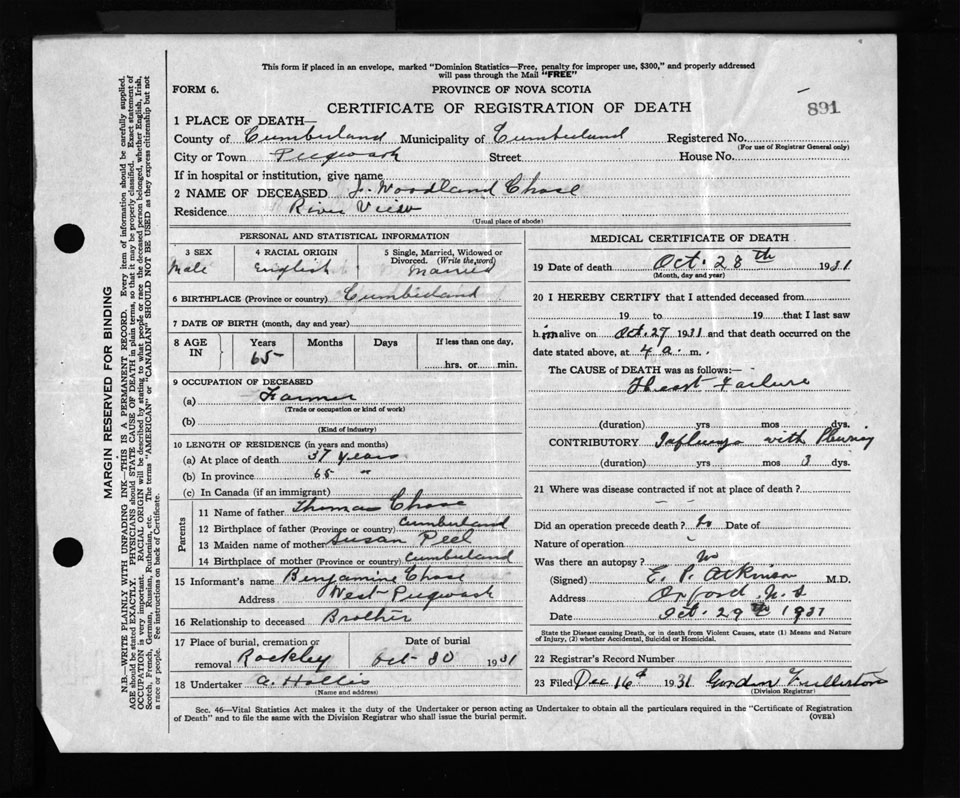 This form if placed in an envelope, marked "Dominion Statistics—Free, penalty for improper use, $300," and properly addressed
will pass through the Mail "FREE"
FORM 6. PROVINCE OF NOVA SCOTIA
CERTIFICATE OF REGISTRATION OF DEATH 891
1 PLACE OF DEATH—
County of Cumberland Municipality of Cumberland Registered No.
(For use of Registrar General only)
City or Town Pugwash Street House No.
If in hospital or institution, give name
2 NAME OF DECEASED J. Woodland Chase
Residence River View
(Usual place of abode)
PERSONAL AND STATISTICAL INFORMATION
3 SEX 4 RACIAL ORIGIN 5 Single, Married, Widowed or
Divorced. (Write the word)
Male English Married
6 BIRTHPLACE (Province or country) Cumberland
7 DATE OF BIRTH (month, day and year)
8 AGE IN Years Months Days If less than one day,
65 hrs. or min.
9 OCCUPATION OF DECEASED
(a) Farmer
(Trade or occupation or kind of work)
(b)
(Kind of industry)
10 LENGTH OF RESIDENCE (in years and months)
(a) At place of death 37 years
(b) In province 65 "
(c) In Canada (if an immigrant)
Parents
11 Name of father Thomas Chase
12 Birthplace of father (Province or country) Cumberland
13 Maiden name of mother Susan Peel
14 Birthplace of mother (Province or country) Cumberland
15 Informant's name Benjamine Chase
Address West Pugwash
16 Relationship to deceased Brother
17 Place of burial, cremation or Date of burial
removal Rockley Oct 30 1931
18 Undertaker A. Hollis
(Name and address)
MEDICAL CERTIFICATE OF DEATH
19 Date of death Oct. 28th 1931
(Month, day and year)
20 I HEREBY CERTIFY that I attended deceased from
19 to 19 that I last saw
him alive on Oct. 27 1931 and that death occurred on the
date stated above, at 4 a. m.
The CAUSE of DEATH was as follows:—
Heart Failure
(duration) yrs mos dys.
CONTRIBUTORY Influenza with Pleurisy
(duration) yrs mos 3 dys.
21 Where was disease contracted if not at place of death?
Did an operation precede death? No Date of
Nature of operation
Was there an autopsy? No
(Signed) E. P. Atkinson M.D.
Address Oxford, N.S
Date Oct. 29th 1931
State the Disease causing Death, or in death from Violent Causes, state (1) Means and Nature
of Injury, (2) whether Accidental, Suicidal or Homicidal.
22 Registrar's Record Number
23 Filed Dec 16th 1931 Gordon Fullerton
(Division Registrar)
Sec. 46—Vital Statistics Act makes it the duty of the Undertaker or person acting as Undertaker to obtain all the particulars required in the "Certificate of Registration
of Death" and to file the same with the Division Registrar who shall issue the burial permit. (OVER)
MARGIN RESERVED FOR BINDING
N.B.—WRITE PLAINLY WITH UNFADING INK—THIS IS A PERMANENT RECORD. Every item of information should be carefully supplied.
AGE should be stated EXACTLY. PHYSICIANS should STATE CAUSE OF DEATH in plain terms, so that it may be properly classified. Exact statement of
OCCUPATION is very important. RACIAL ORIGIN will be described by stating to what people or race the deceased person belonged, whether English, Irish,
Scotch, French, German, Russian, Ruthenian, etc. The terms "AMERICAN" or "CANADIAN" SHOULD NOT BE USED as they express citizenship but not
a race or people. See instructions on back of Certificate.